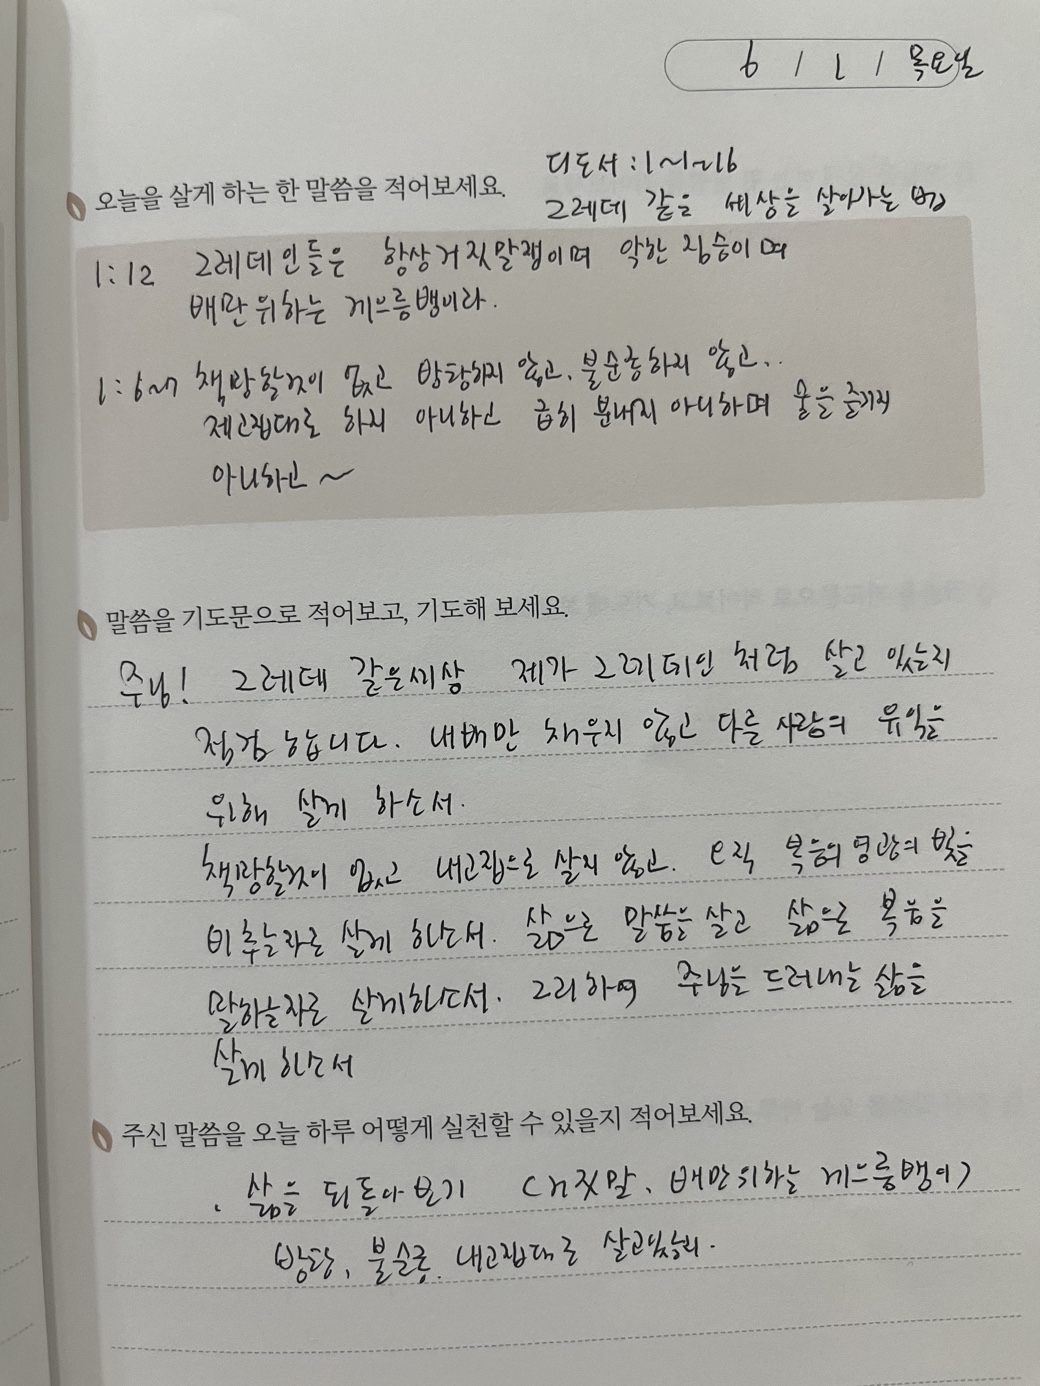 6 / 1 / 목요일
디도서 : 1~1~16
오늘을 살게 하는 한 말씀을 적어보세요.
그레데 같은 세상을 살아가는 법
1:12 그레데인들은 항상거짓말쟁이며 악한 짐승이며
배만위하는 게으름뱅이라.
1:6~7 책망할것이 없고 방탕하지 않고, 불순종하지 않고..
제고집대로 하지 아니하고 급히 분내지 아니하며 술을 즐기지
아니하고 ~
말씀을 기도문으로 적어보고, 기도해 보세요.
주님! 그레데 같은세상 제가 그레데인 처럼 살고 있는지
점검 합니다. 내배만 채우지 않고 다른 사람의 유익을
위해 살게 하소서.
책망할것이 없고 내고집으로 살지 않고. 오직 복음의 영광의 빛을
비추는자로 살게 하소서. 삶으로 말씀을 살고 삶으로 복음을
말하는자로 살게하소서. 그리하여 주님을 드러내는 삶을
살게 하소서
주신 말씀을 오늘 하루 어떻게 실천할 수 있을지 적어보세요.
. 삶을 되돌아 보기 <거짓말, 배만위하는 게으름뱅이>
방탕, 불순종, 내고집대로